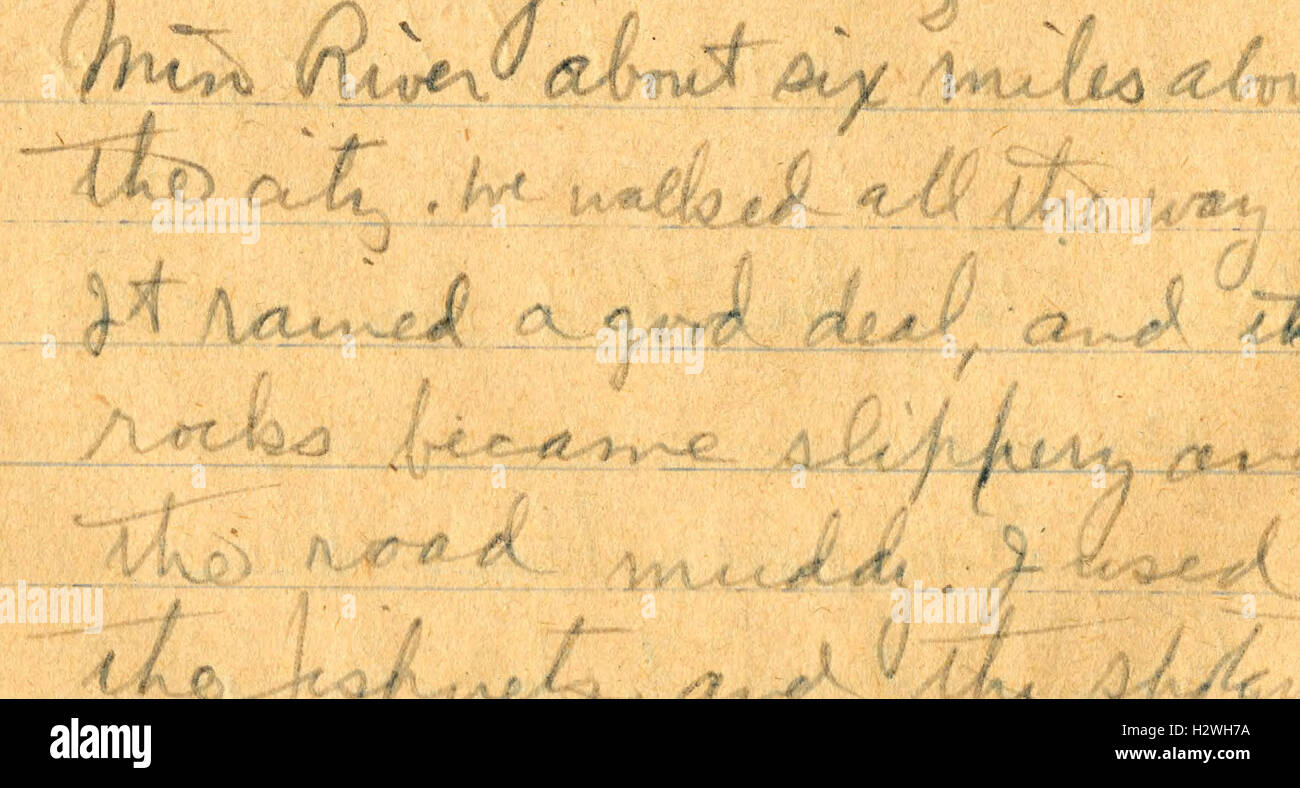 Min River about six miles abov
the city. We walked all the way
It rained a good deal, and th
rocks became slippery and
the road muddy. I used
the fishnets and the
alamy
Image ID: H2WH7A
www.alamy.com